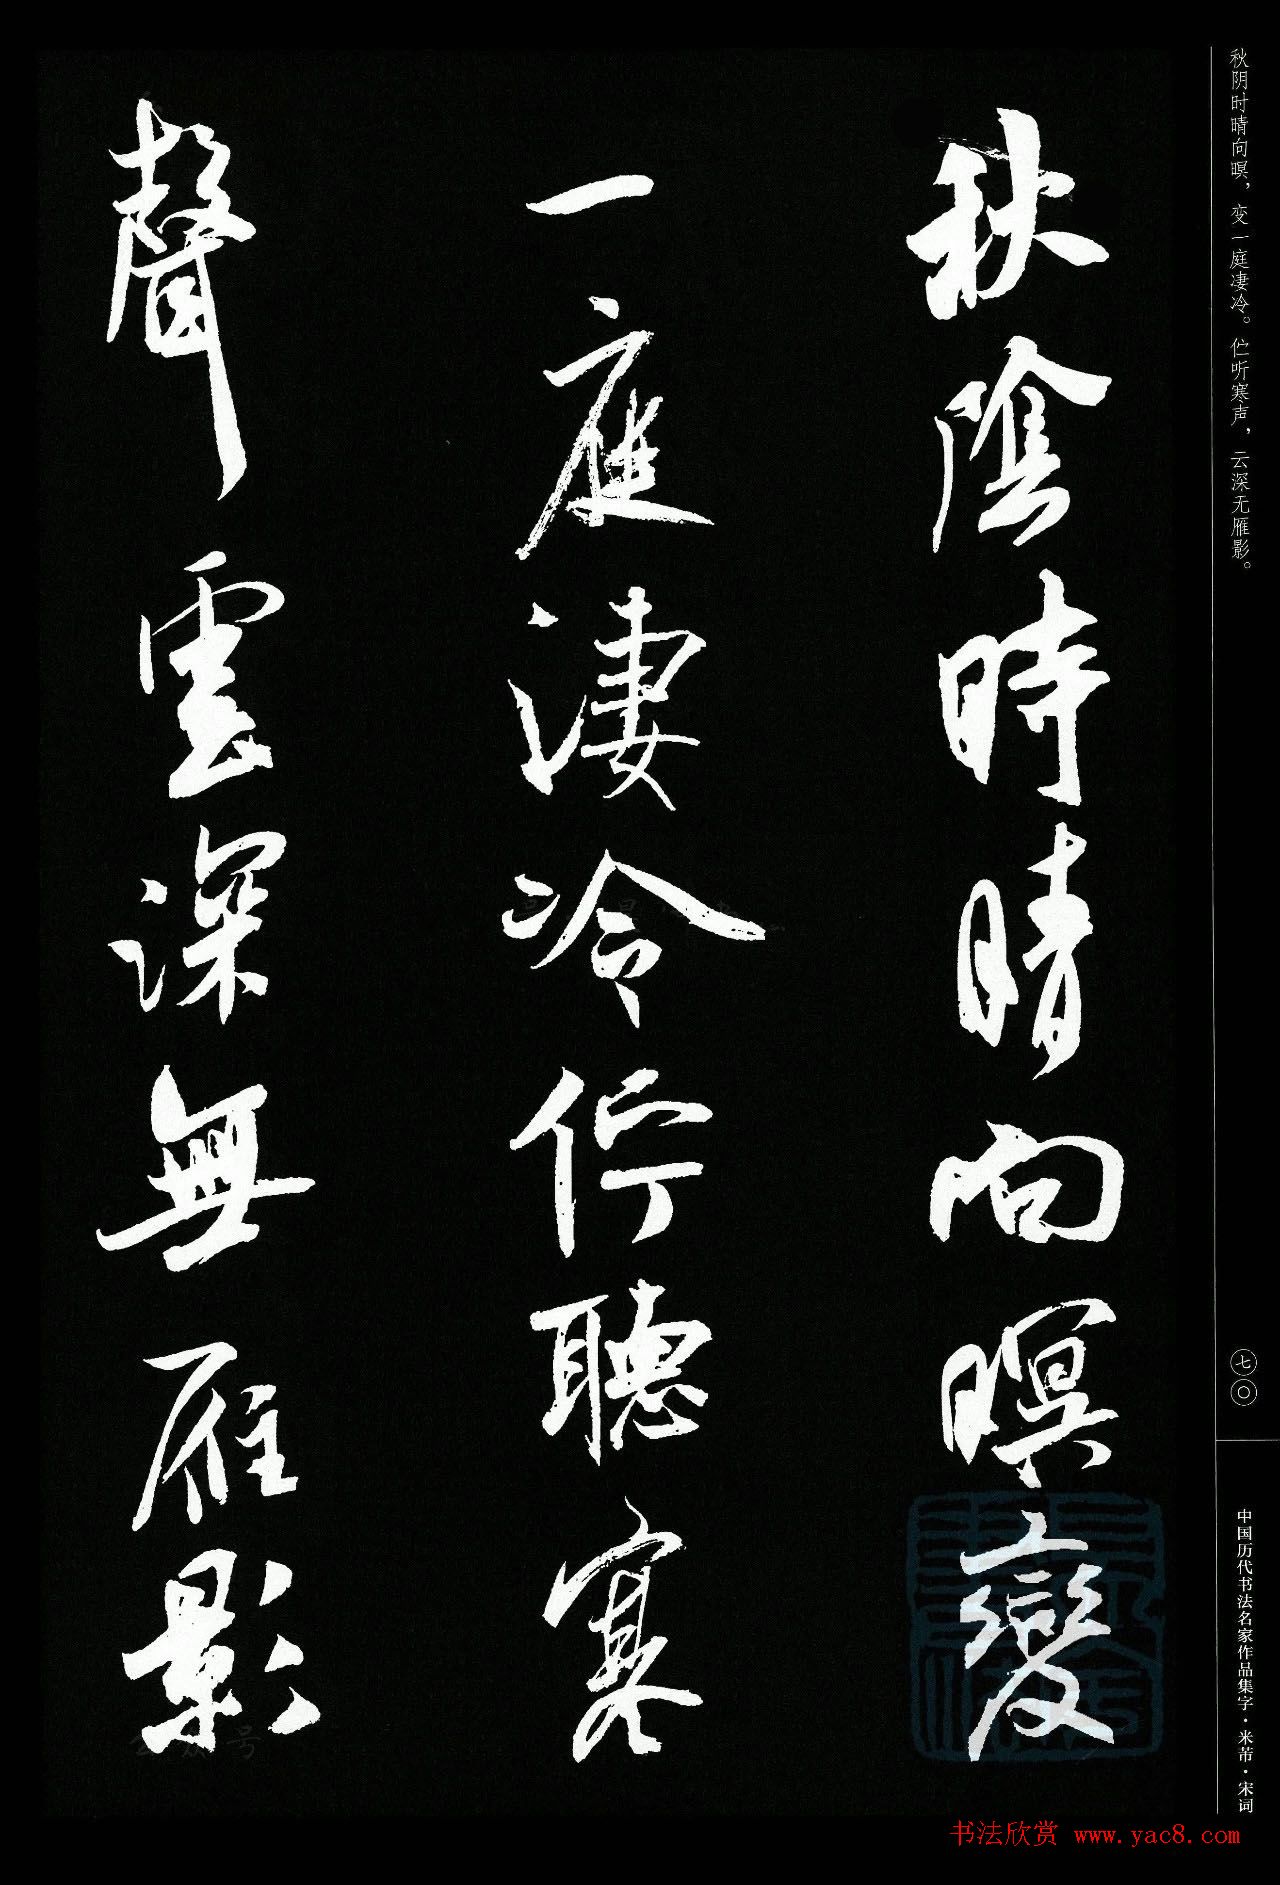 秋阴时晴向暝，变一庭凄冷。伫听寒声，云深无雁影。
秋陰時晴向暝變
一庭淒冷佇聽寒
聲雲深無雁影
七〇
中国历代书法名家作品集字·米芾·宋词
书法欣赏 www.yac8.com